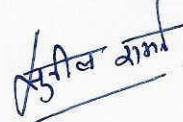 सुनील शर्मा